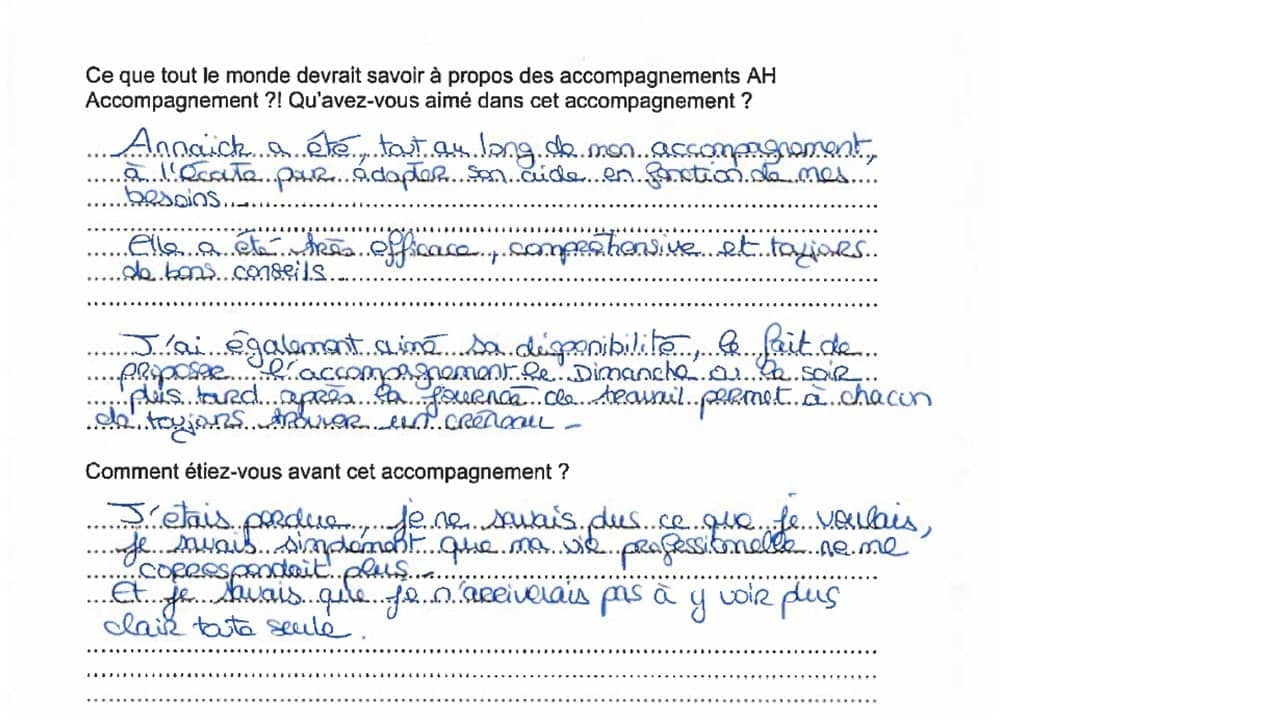 Ce que tout le monde devrait savoir à propos des accompagnements AH
Accompagnement ?! Qu'avez-vous aimé dans cet accompagnement ?
Annaïck a été, tout au long de mon accompagnement,
à l'écoute pour adapter son aide en fonction de mes
besoins.
Elle a été très efficace, compréhensive et toujours
de bons conseils.
J'ai également aimé sa disponibilité, le fait de
proposer l'accompagnement le Dimanche ou le soir
plus tard après la journée de travail permet à chacun
de toujours trouver un créneau -
Comment étiez-vous avant cet accompagnement ?
J'étais perdue, je ne savais plus ce que je voulais,
je savais simplement que ma vie professionnelle ne me
correspondait plus.
Et je savais que je n'arriverais pas à y voir plus
clair toute seule.